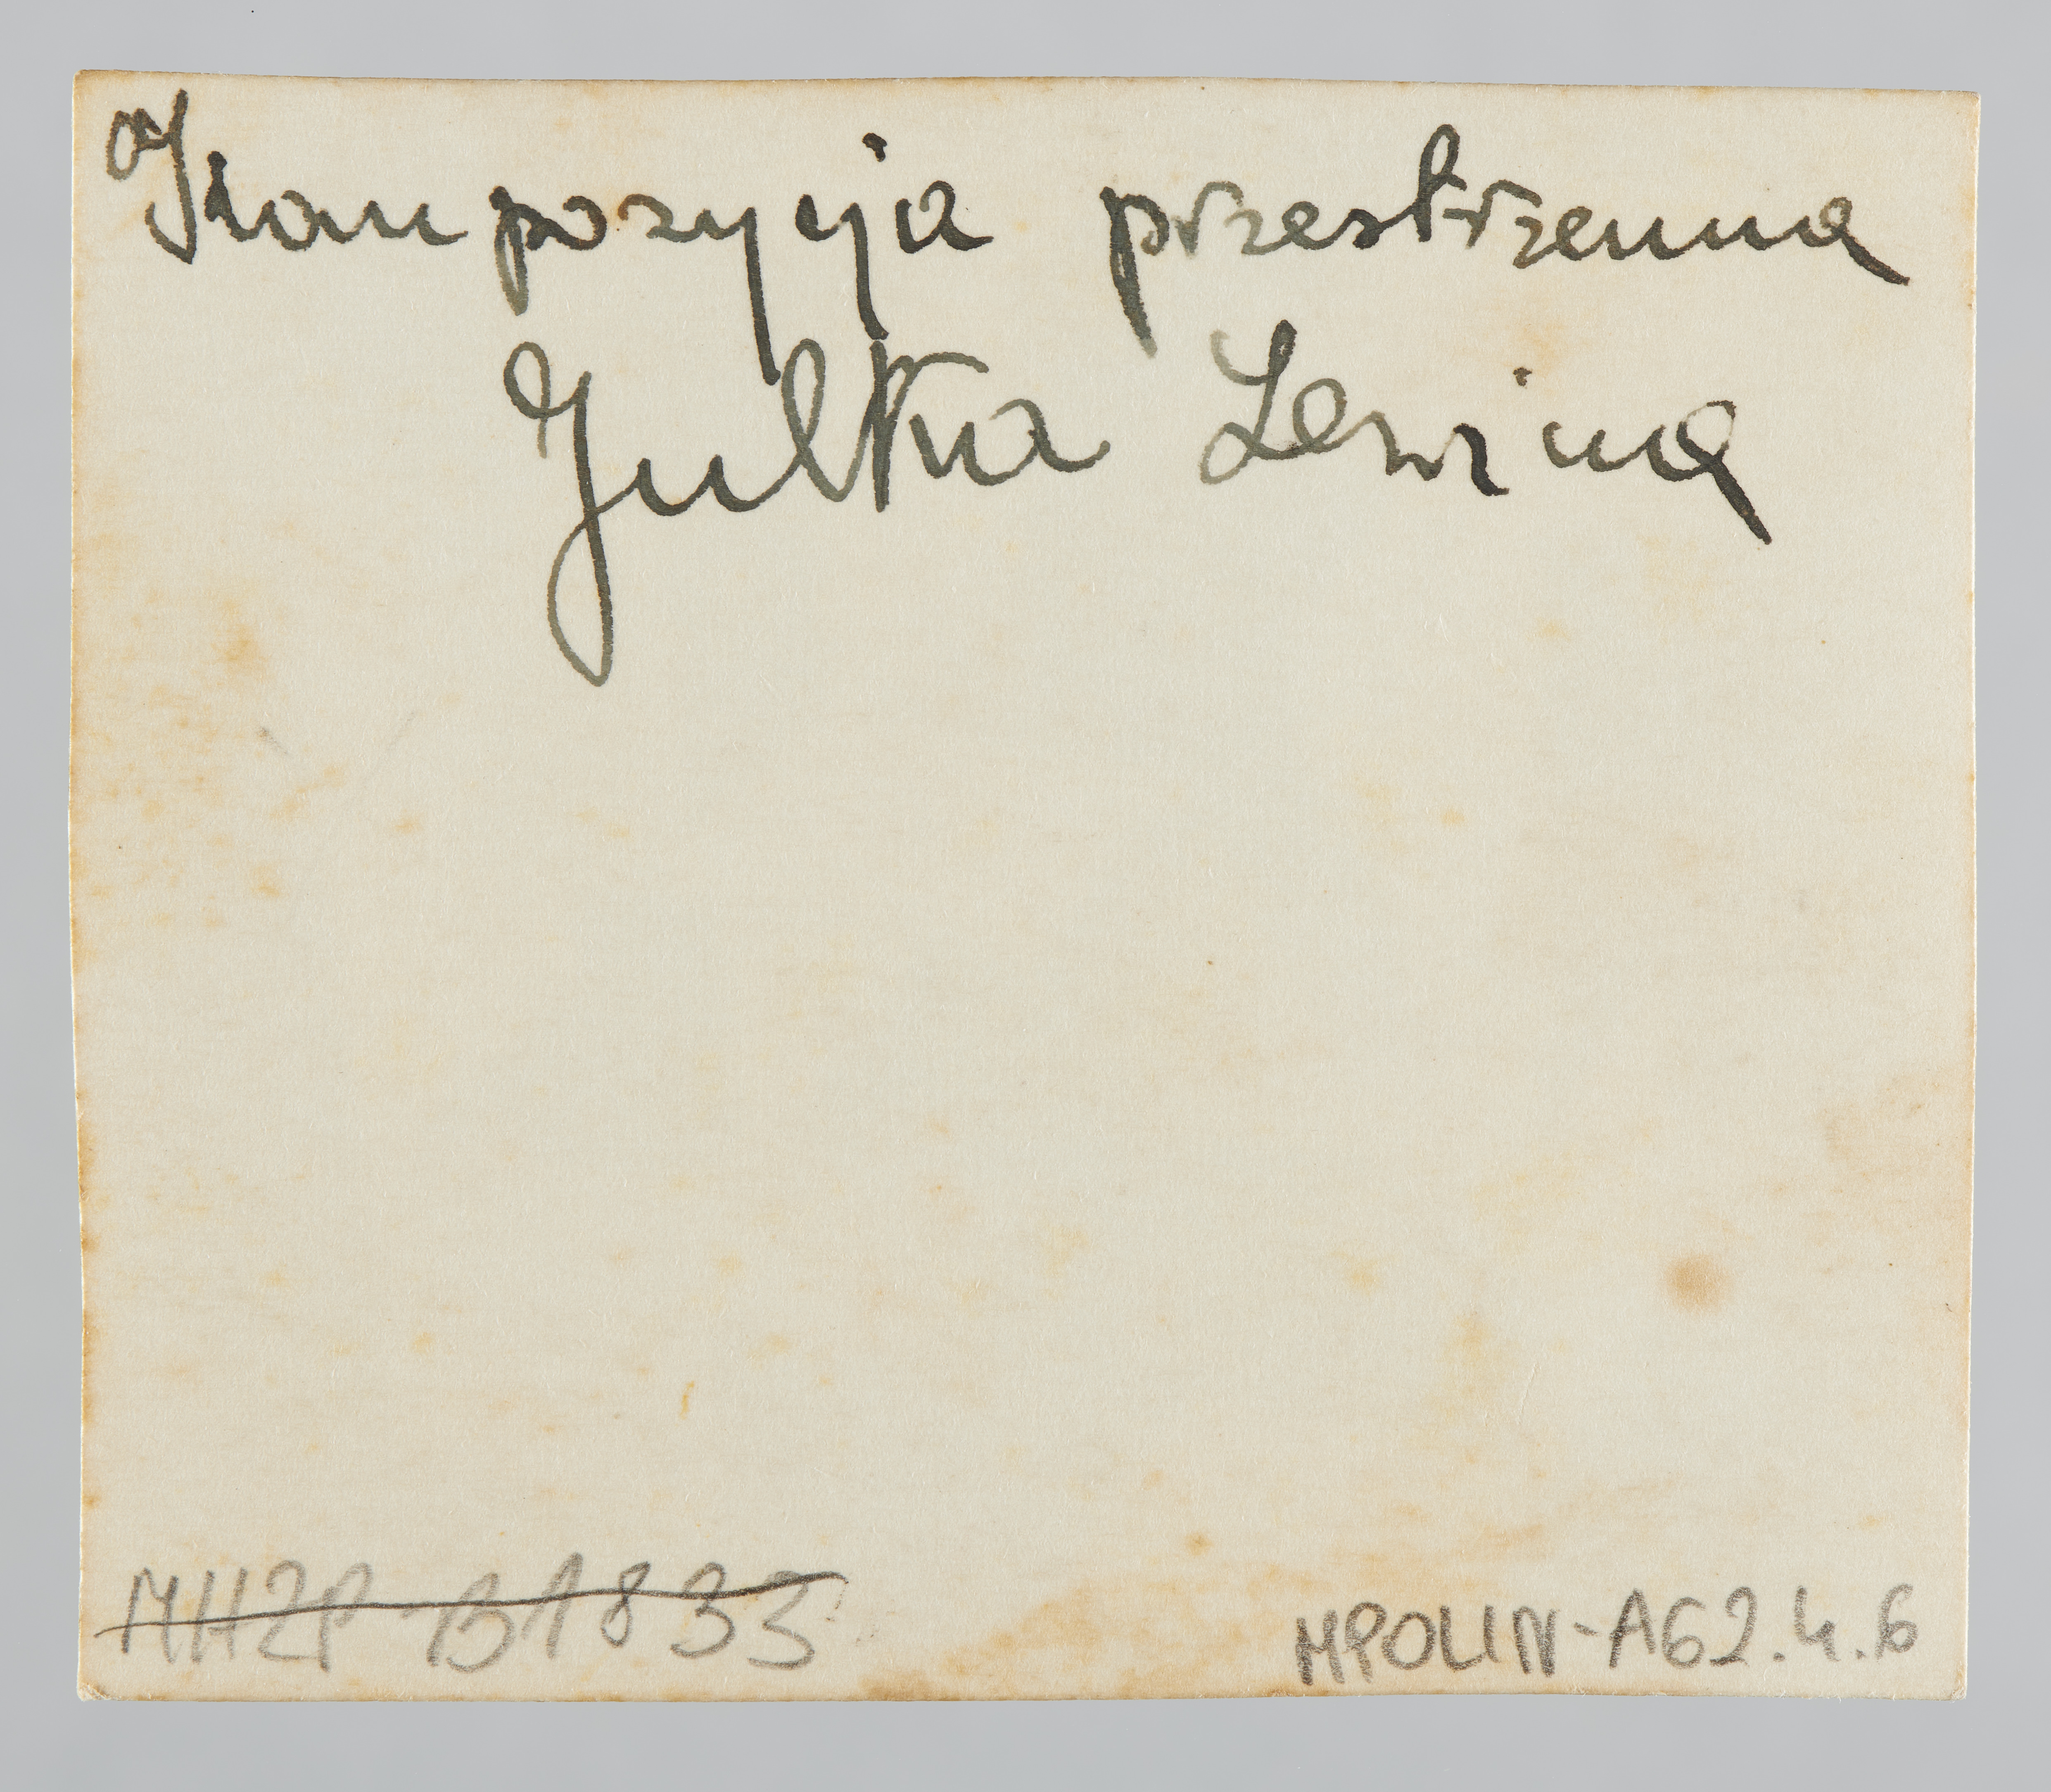 Kompozycja przestrzenna
Julka Lewina
MHZP B1833
MPOLIN-A62.4.6